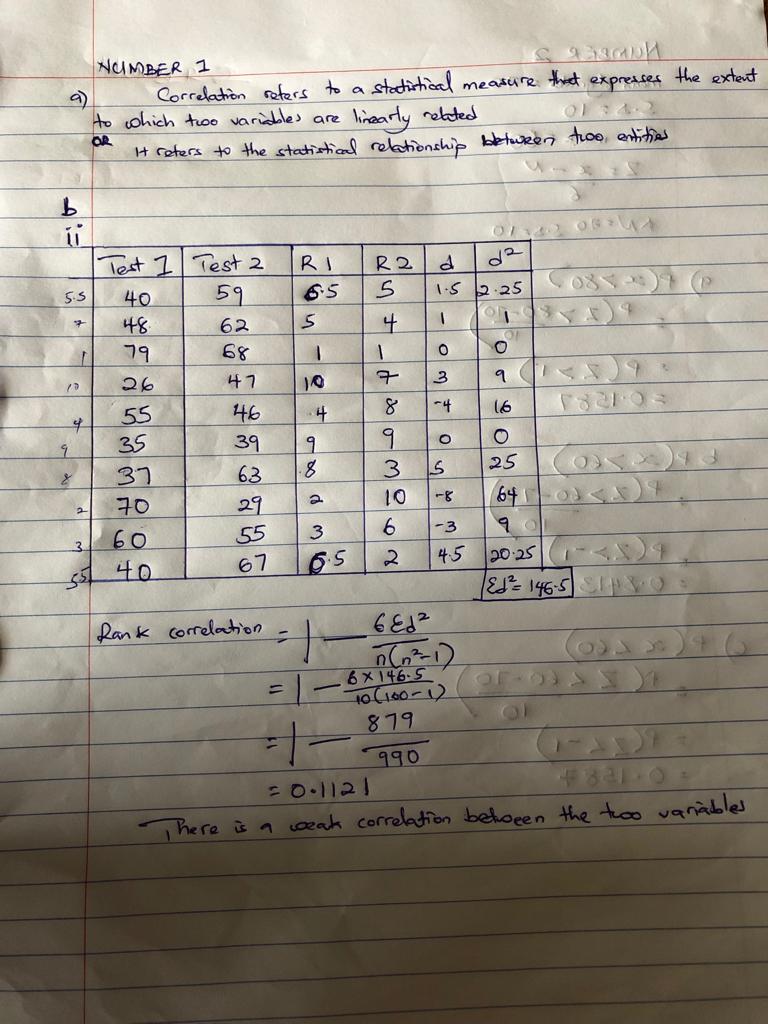 NUMBER 1
a) Correlation refers to a statistical measure that expresses the extent
to which two variables are linearly related
OR It refers to the statistical relationship between two entities
b
ii
Test 1 Test 2 R1 R2 d d²
5.5 40 59 6.5 5 1.5 2.25
7 48 62 5 4 1 1
1 79 68 1 1 0 0
10 26 47 10 7 3 9
4 55 46 4 8 -4 16
9 35 39 9 9 0 0
8 37 63 8 3 5 25
2 70 29 2 10 -8 64
3 60 55 3 6 -3 9
5.5 40 67 6.5 2 4.5 20.25
Σd² = 146.5
Rank correlation = 1 — 6Σd² / n(n²-1)
= 1 — 6 x 146.5 / 10(100-1)
= 1 — 879 / 990
= 0.1121
There is a weak correlation between the two variables